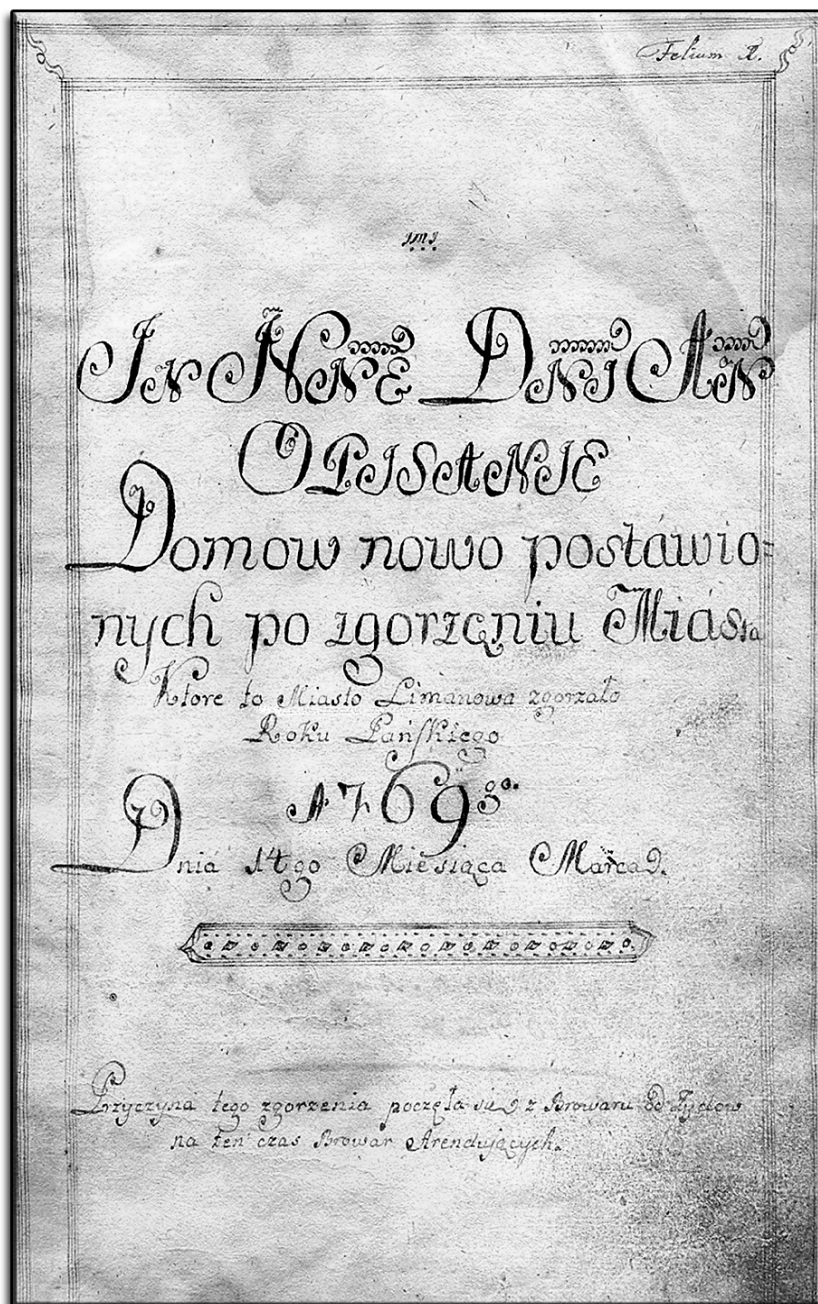 Folium 1.
JMJ
IN NNE DNI AN
OPISANIE
Domow nowo postáwio=
nych po zgorzęniu Miásta
Ktore to Miasto Limanowa zgorzało
Roku Pańskiego
1769go.
Dnia 14go Miesiąca Marca.
Przyczyna tego zgorzenia poczęła się z Browaru od Żydow
na ten czas Browar Arendujących.